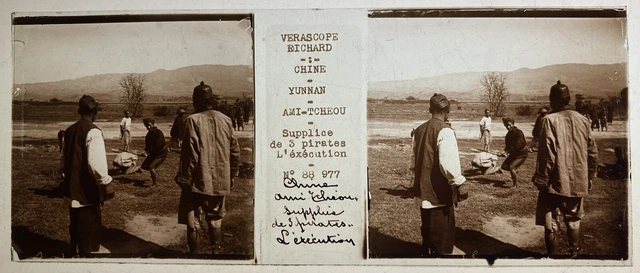 VERASCOPE
RICHARD
-:-
CHINE
-
YUNNAN
-
AMI-TCHEOU
-
Supplice
de 3 pirates
L'éxécution
-
N° 88 977
Ami Tcheou
supplice
de 3 pirates
L'éxécution